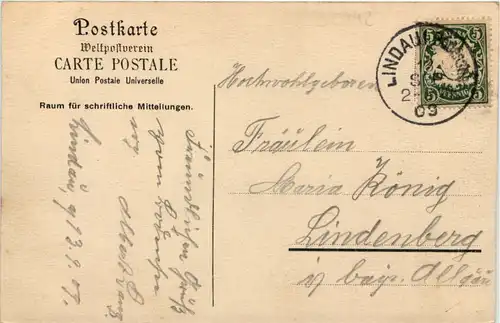 Postkarte
Weltpostverein
CARTE POSTALE
Union Postale Universelle
Raum für schriftliche Mitteilungen.
LINDAU
S
2
09
5
5
5
5
Hochwohlgeboren
Fräulein
Maria König
Lindenberg
i/ bayr. Allgäu
Freundlichen Gruß
vom Bodensee
Lindau,